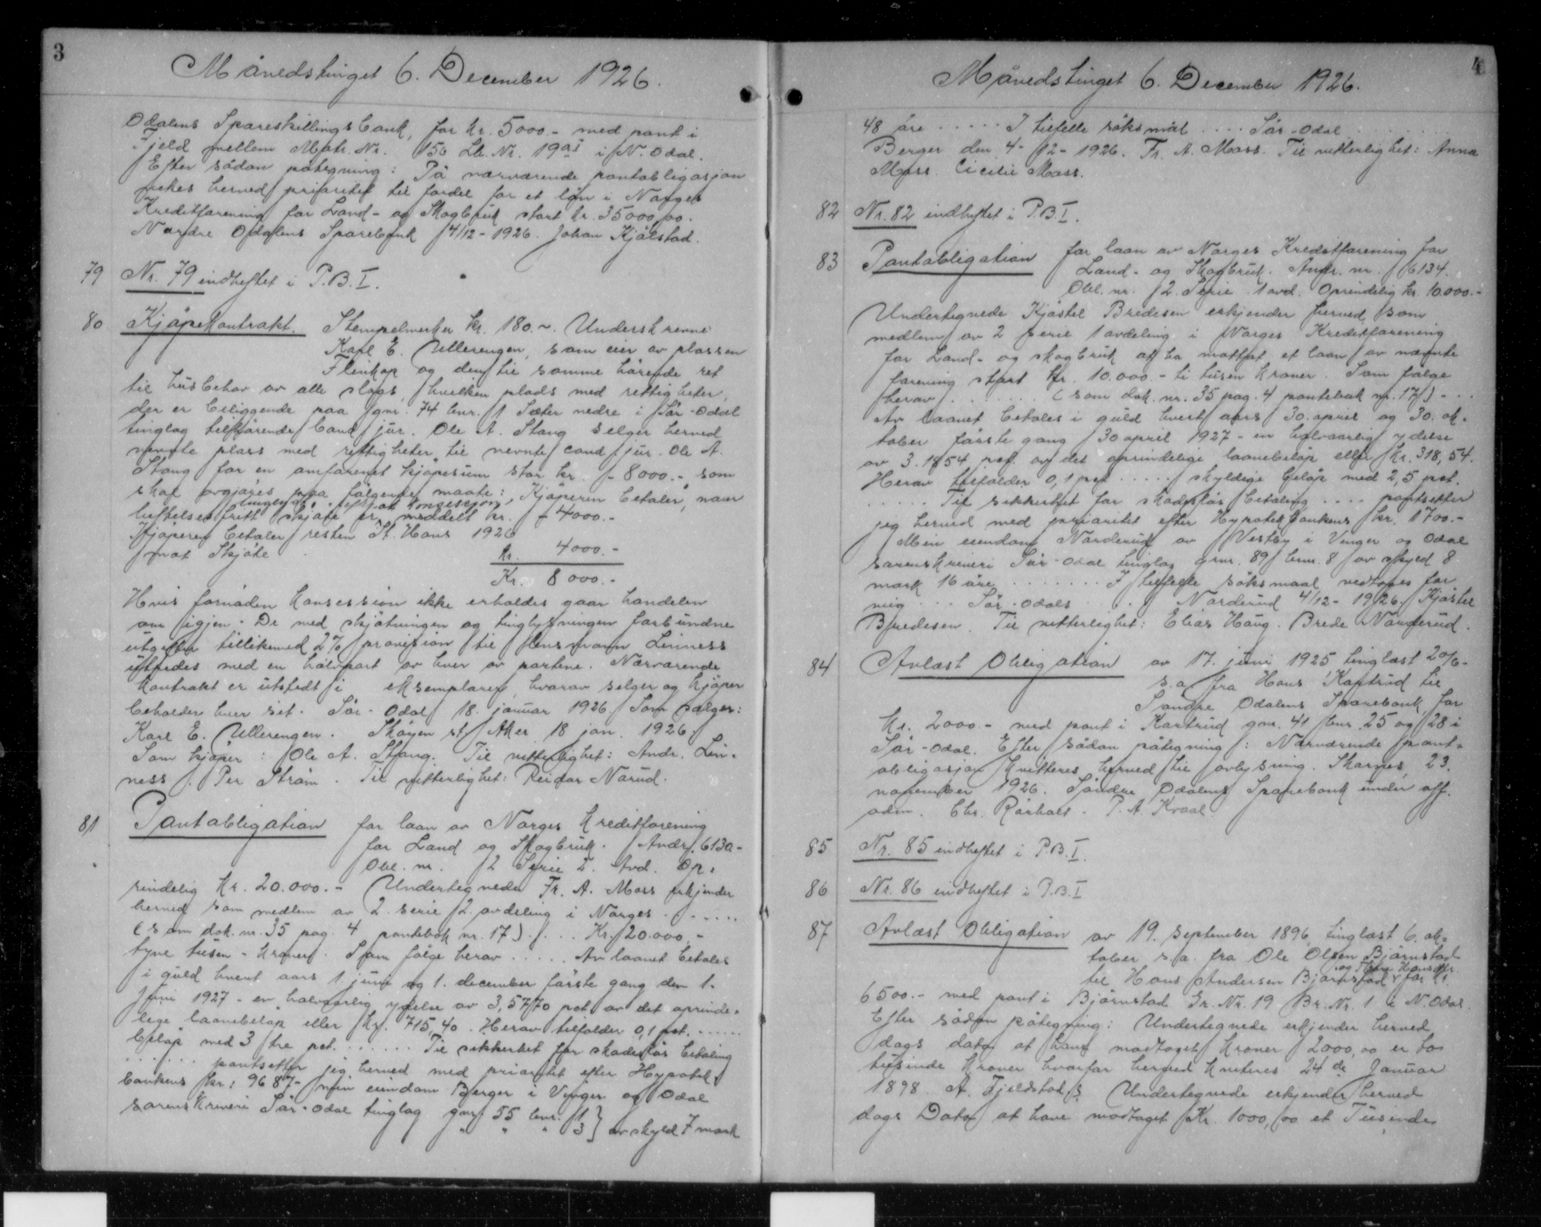 3
Månedstinget 6. December 1926.
Odalens Spareskillingsbank, for kr. 5000.- med pant i
Fjeld mellem Matr. Nr. 150 Lb. Nr. 19 i N. Odal.
Efter sådan påtegning: På nærværende pantobligasjon
vekes herved prioritet til fordel for et lån i Norges
Kreditforening for Land- og Skogbruk stort kr. 35000,00.
Nordre Odalens Sparebank 4/12-1926. Johan Kjølstad.
79 Nr. 79 indheftet i P.B.I.
80 Kjøpekontrakt. Stempelmerker kr. 180.~. Underskrevne
Karl E. Ullerengen, som eier av plassen
Flinkop og den til samme hørende ret
til husbehov av alle slags, hvilken plads med rettigheter,
der er beliggende paa gnr. 74 bnr. 1 Sæter nedre i Sør-Odal
tinglag tilhørende cand. jur. Ole A. Stang selger herved
nevnte plass med rettigheter til nevnte cand. jur. Ole A.
Stang for en omforenet kjøpesum stor kr. 8000.-, som
skal avgjøres paa følgende maate: Kjøperen betaler, naar
heftelsesfritt skjøte er meddelt kr. 4000.-
Kjøperen betaler resten St. Hans 1926
mot Skjøte kr. 4000.-
Kr. 8000.-
Hvis fornøden konsession ikke erholdes gaar handelen
om igjen. De med skjøtningen og tinglysningen forbundne
utgifter tillikemed 2% provision til lensmann Linness
utredes med en halvpart av hver av partene. Nærværende
kontrakt er utstedt i eksemplarer, hvorav selger og kjøper
beholder hver sit. Sør-Odal 18. januar 1926. Som sælger:
Karl E. Ullerengen. Skøyen st. Aker 18 jan. 1926
Som kjøper: Ole A. Stang. Til vitterlighet: Andr. Lin-
ness. Per Strøm. Til vitterlighet: Reidar Narud.
81 Pantobligation for laan av Norges Kreditforening
for Land og Skogbruk. Andr. 6130-
Obl. nr. 2 Serie 2. Avd. Op-
rindelig kr. 20.000.- Undertegnede Fr. A. Moss erkjender
herved som medlem av 2. serie 2 avdeling i Norges .....
(som dok. nr. 35 pag. 4 pantebok nr. 17) ... Kr. 20.000,-
tyve tusen - kroner. Som følge herav ..... Av laanet betales
i guld hvert aars 1 juni og 1. december første gang den 1.
Juni 1927 - en halvaarlig ydelse av 3,5770 pct av det oprinde-
lige laanebeløp eller kr. 715,40. Herav tilfalder 0,1 pct. ......
beløp med 3 tre pct. ...... Til sikkerhet for skadesløs betaling
...... pantsetter jeg herved med prioritet efter Hypotek-
bankens kr: 9687- min eiendom Berger i Vinger og Odal
sorenskriveri Sør-Odal tinglag gnr. 55 bnr. 1
" " " 3 } av skyld 7 mark
4
Månedstinget 6. December 1926.
48 øre ..... I tilfelle søksmål .... Sør-Odal .......
Berger den 4-12-1926. Fr. A. Moss. Til vitterlighet: Anna
Moss. Cicilie Moss.
82 Nr. 82 indheftet i P.B.I.
83 Pantobligation for laan av Norges Kreditforening for
Land- og Skogbruk. Andr. nr. 6134.
Obl. nr. 2 Serie 1 avd. Oprindelig kr. 10.000.-
Undertegnede Kjøstel Bredesen erkjender herved som
medlem av 2 serie 1 avdeling i Norges Kreditforening
for Land- og skogbruk at ha mottat et laan av nævnte
forening stort kr. 10.000.- ti tusen kroner. Som følge
herav ........ (som dok. nr. 35 pag. 4 pantebok nr. 17) - ...
Av laanet betales i guld hvert aars 30. april og 30. ok-
tober første gang 30 april 1927 - en halvaarlig ydelse
av 3.1854 pct. av det oprindelige laanebeløp eller kr. 318,54.
Herav tilfalder 0,1 pct ..... skyldige beløp med 2,5 pct.
..... Til sikkerhet for skadesløs betaling .... pantsetter
jeg herved med prioritet efter Hypotekbankens kr. 1700.-
Min eiendom Narderud av Vestby i Vinger og Odal
sorenskriveri Sør-Odal tinglag gnr. 89 bnr. 8 av skyld 8
mark 16 øre ........ I tilfelde søksmaal vedtages for
mig ... Sør-Odals .... Narderud 4/12-1926. Kjøstel
Bredesen. Til vitterlighet: Elias Haug. Brede Narderud.
84 Avlæst Obligation av 17. juni 1925 tinglæst 20/6-
s.a. fra Hans Kantrud til
Søndre Odalens Sparebank for
kr. 2000.- med pant i Kantrud gnr. 41 bnr. 25 og 28 i
Sør-Odal. Efter sådan påtegning: Nærværende pant-
obligasjon kvitteres herved til avlysning. Skarnes 23.
november 1926. Søndre Odalens Sparebank under off.
adm. Chr. Rørholt. P. A. Kvaal.
85 Nr. 85 indheftet i P.B.I.
86 Nr. 86 indheftet i P.B.I
87 Avlæst Obligation av 19. september 1896, tinglæst 6. ok-
tober s.a. fra Ole Olsen Bjørnstad
til Hans Andersen Bjørnstad for kr.
6500.- med pant i Bjørnstad Gr. Nr. 19 Br. Nr. 1 i N. Odal.
Efter sådan påtegning: Undertegnede erkjender herved
dags dato at have modtaget Kroner 2000,00 er to
tusinde Kroner hvorfor herved kviteres 24de Januar
1898. A. Fjeldstad. Undertegnede erkjender herved
dags Dato at have modtaget Kr. 1000,00 et Tusinde